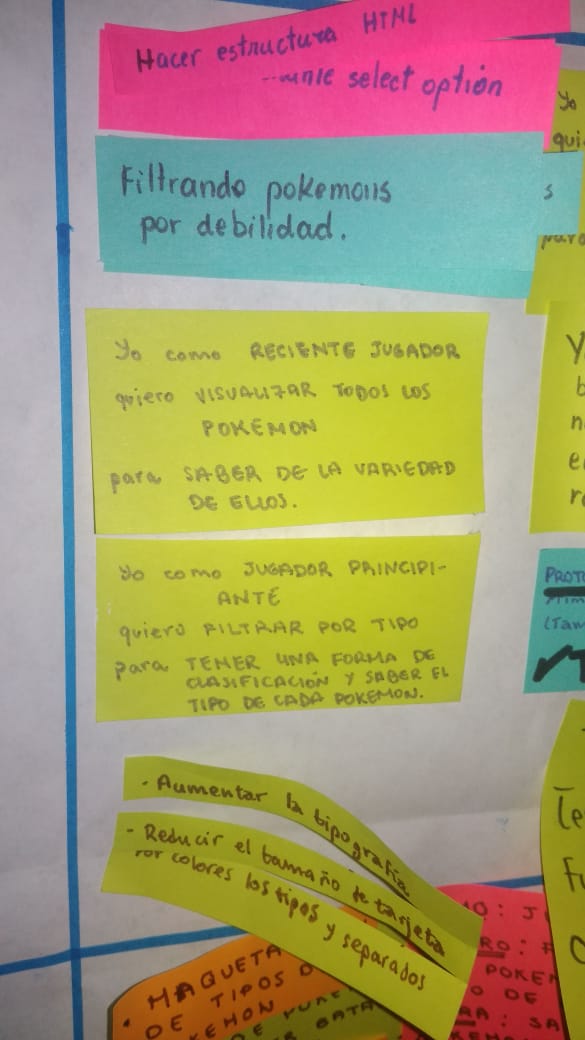 Hacer estructura HTML
select option
Filtrando pokemons
por debilidad.
s
Yo
qui
para
Yo como RECIENTE JUGADOR
quiero VISUALIZAR TODOS LOS
POKEMON
para SABER DE LA VARIEDAD
DE ELLOS.
Yo como JUGADOR PRINCIPI-
ANTE
quiero FILTRAR POR TIPO
para TENER UNA FORMA DE
CLASIFICACIÓN Y SABER EL
TIPO DE CADA POKEMON.
Y
b
n
e
r
PROT
(Tam
- Aumentar la tipografía
- Reducir el tamaño de tarjeta
por colores los tipos y separados
• MAQUETA
DE TIPOS D
KEMON
O: J
RO: P
POKEM
O DE
RA: SA
Te
Fu